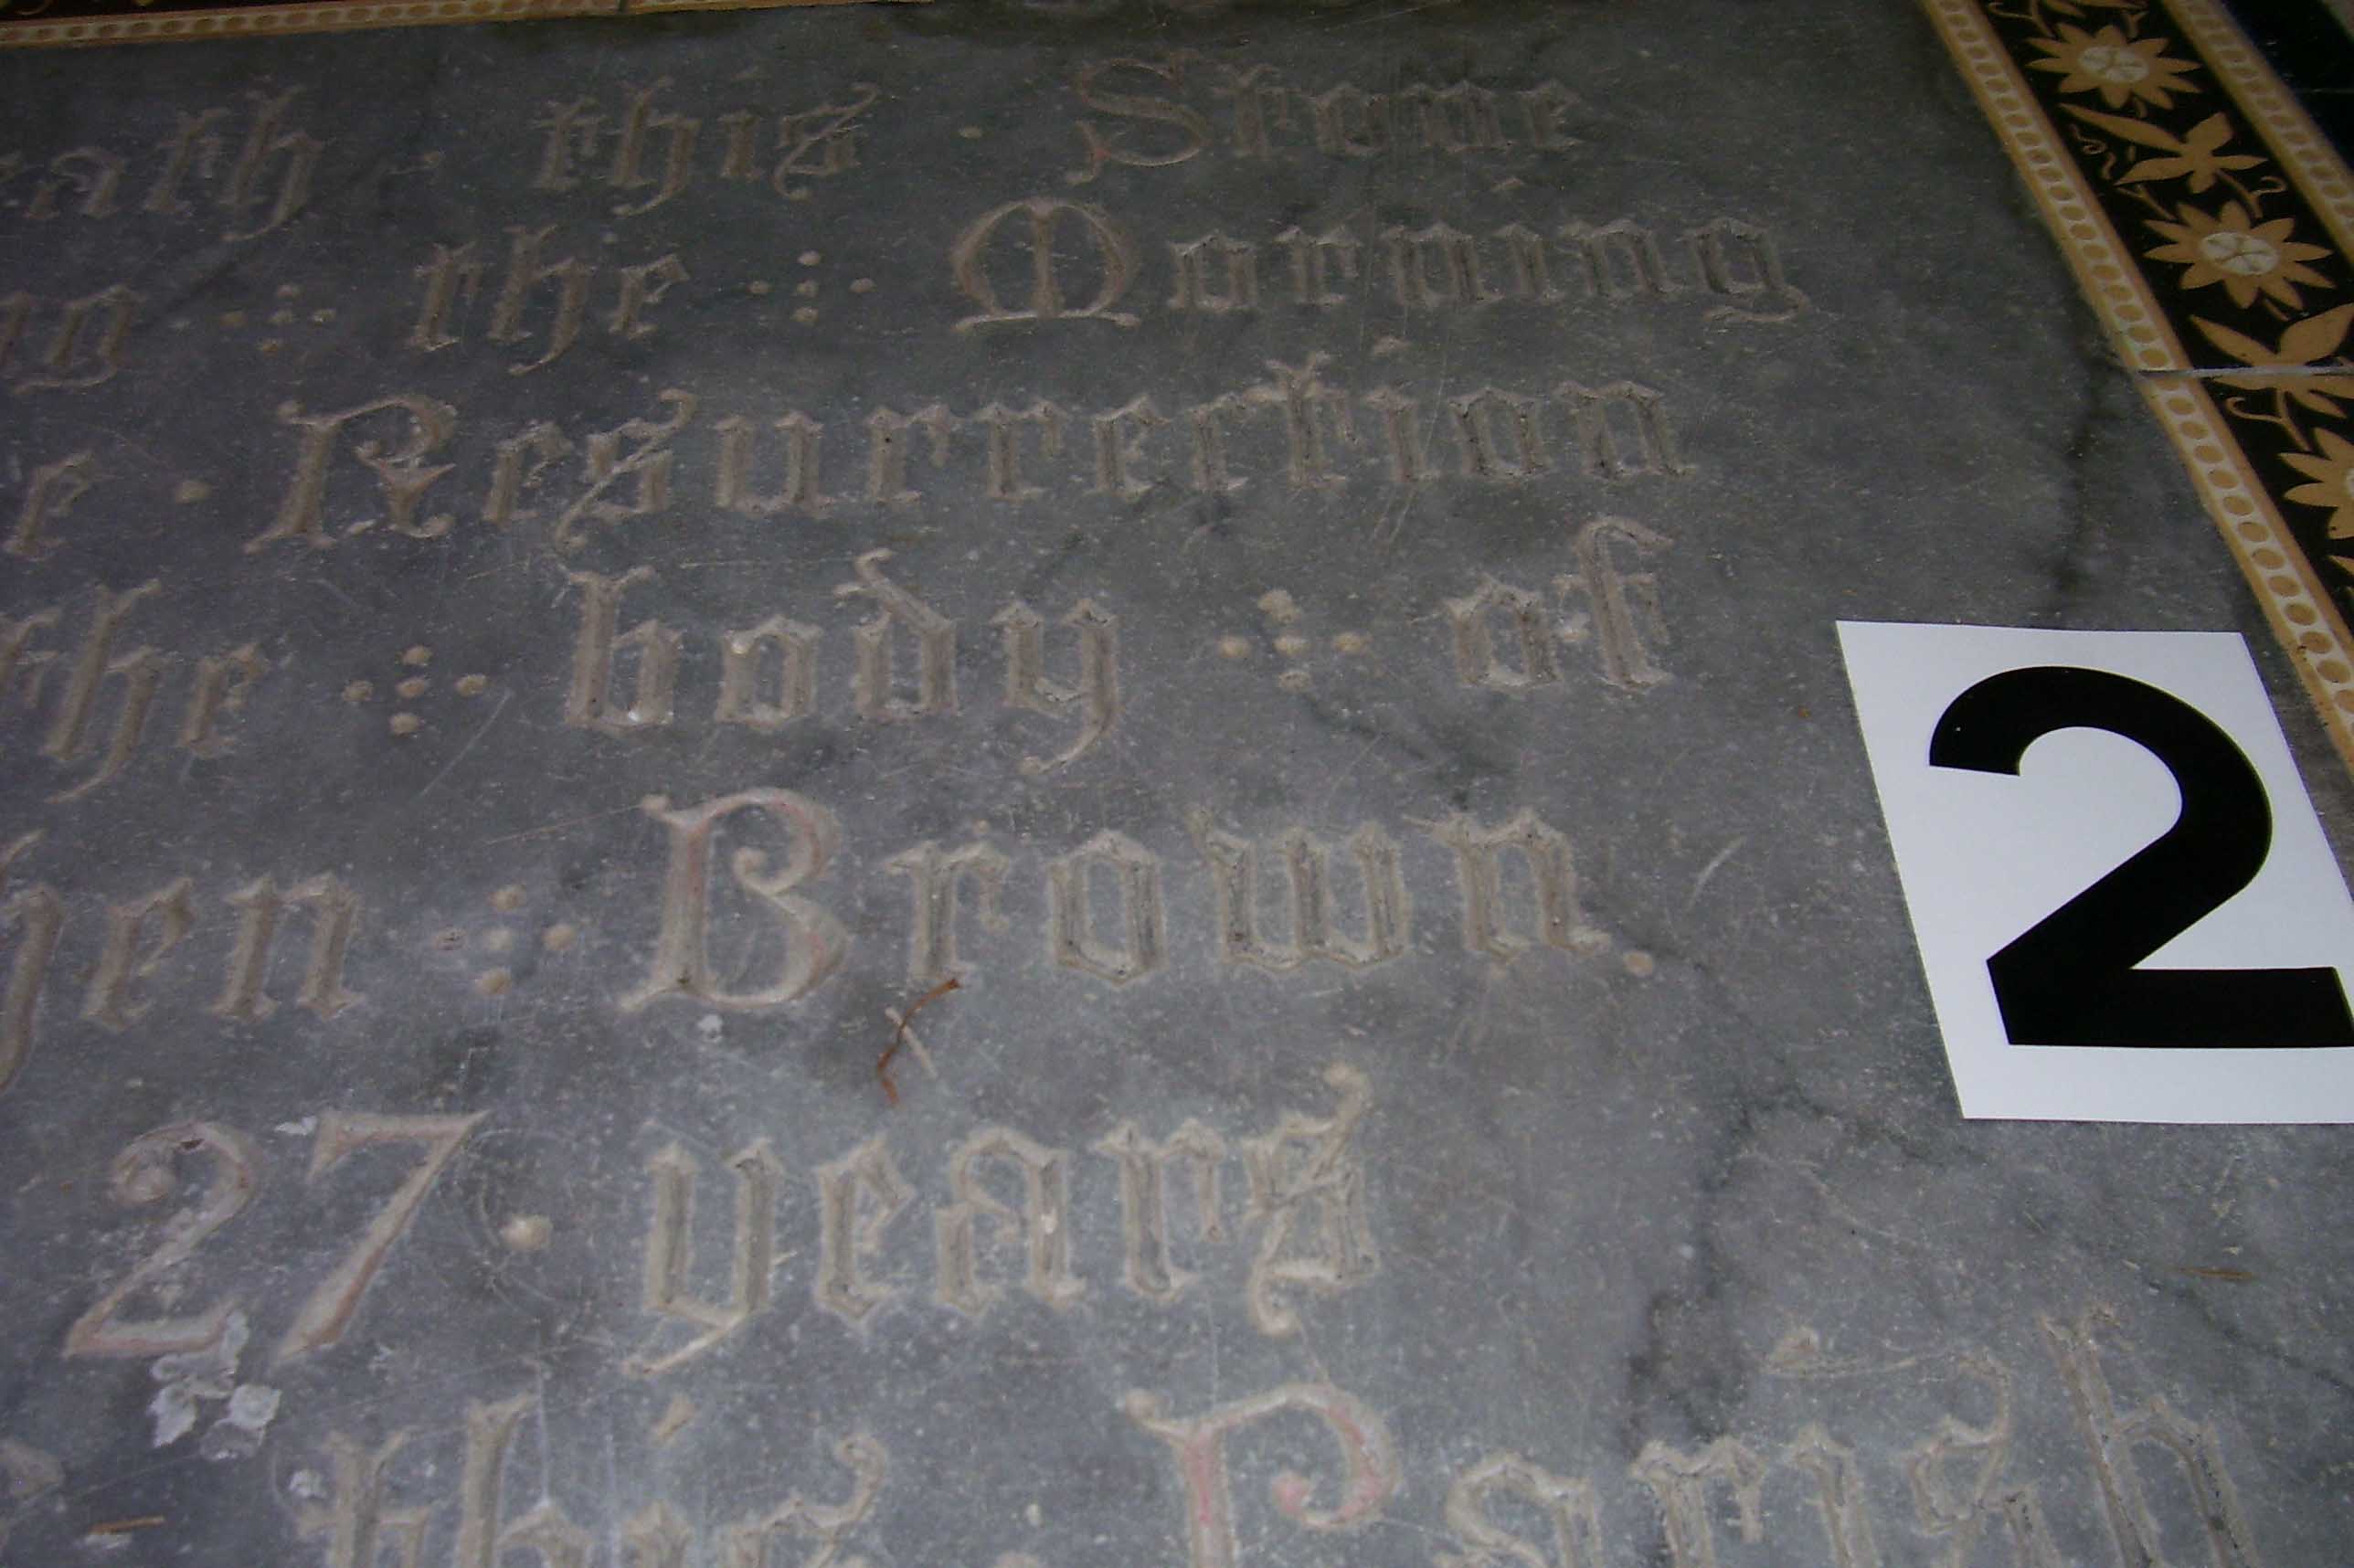 ath this Stone
ng the Morning
e Resurrection
the body of
hen Brown.
2
27 years
this Parish